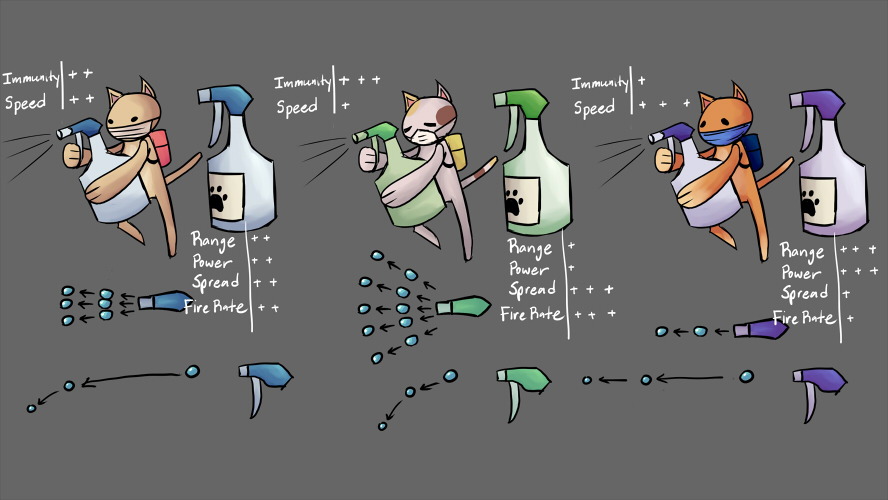 Immunity + +
Speed + +
Range + +
Power + +
Spread + +
Fire Rate + +
Immunity + + +
Speed +
Range +
Power +
Spread + + +
Fire Rate + + +
Immunity +
Speed + + +
Range + + +
Power + + +
Spread +
Fire Rate +